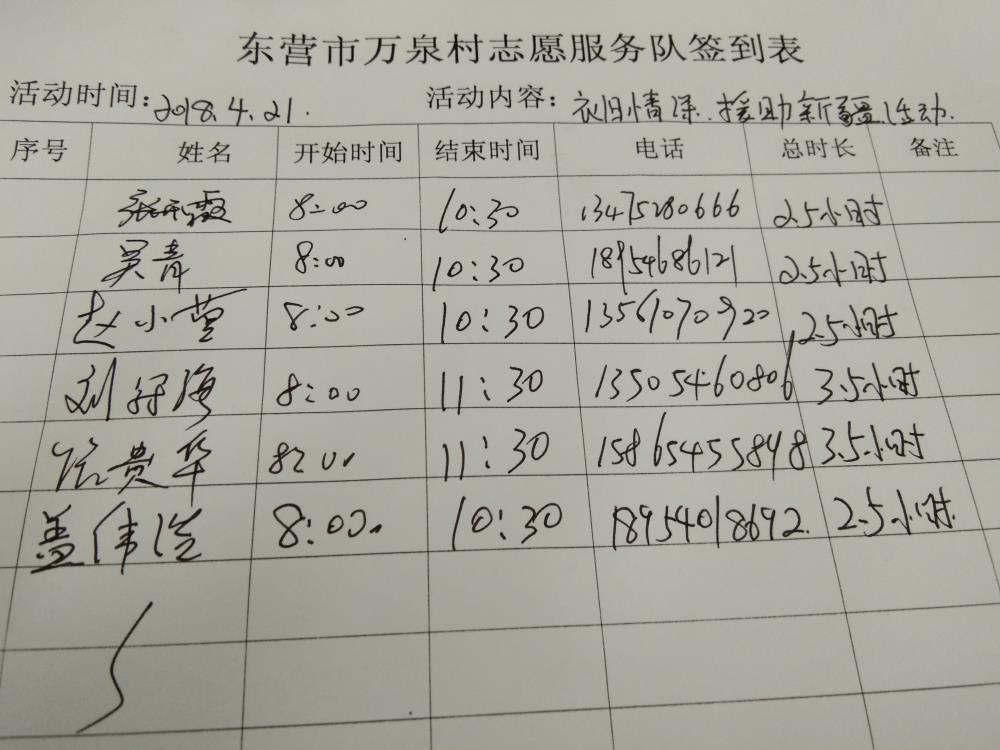 东营市万泉村志愿服务队签到表
活动时间：2018.4.21. 活动内容：衣旧情深.援助新疆活动.
序号 姓名 开始时间 结束时间 电话 总时长 备注
8:00 10:30 13475280666 2.5小时
吴青 8:00 10:30 18954686121 2.5小时
赵小萱 8:00 10:30 13561070920 2.5小时
刘海 8:00 11:30 13505460806 3.5小时
贵华 8:00 11:30 15865455898 3.5小时
盖伟 8:00. 10:30 18954018692. 2.5小时.